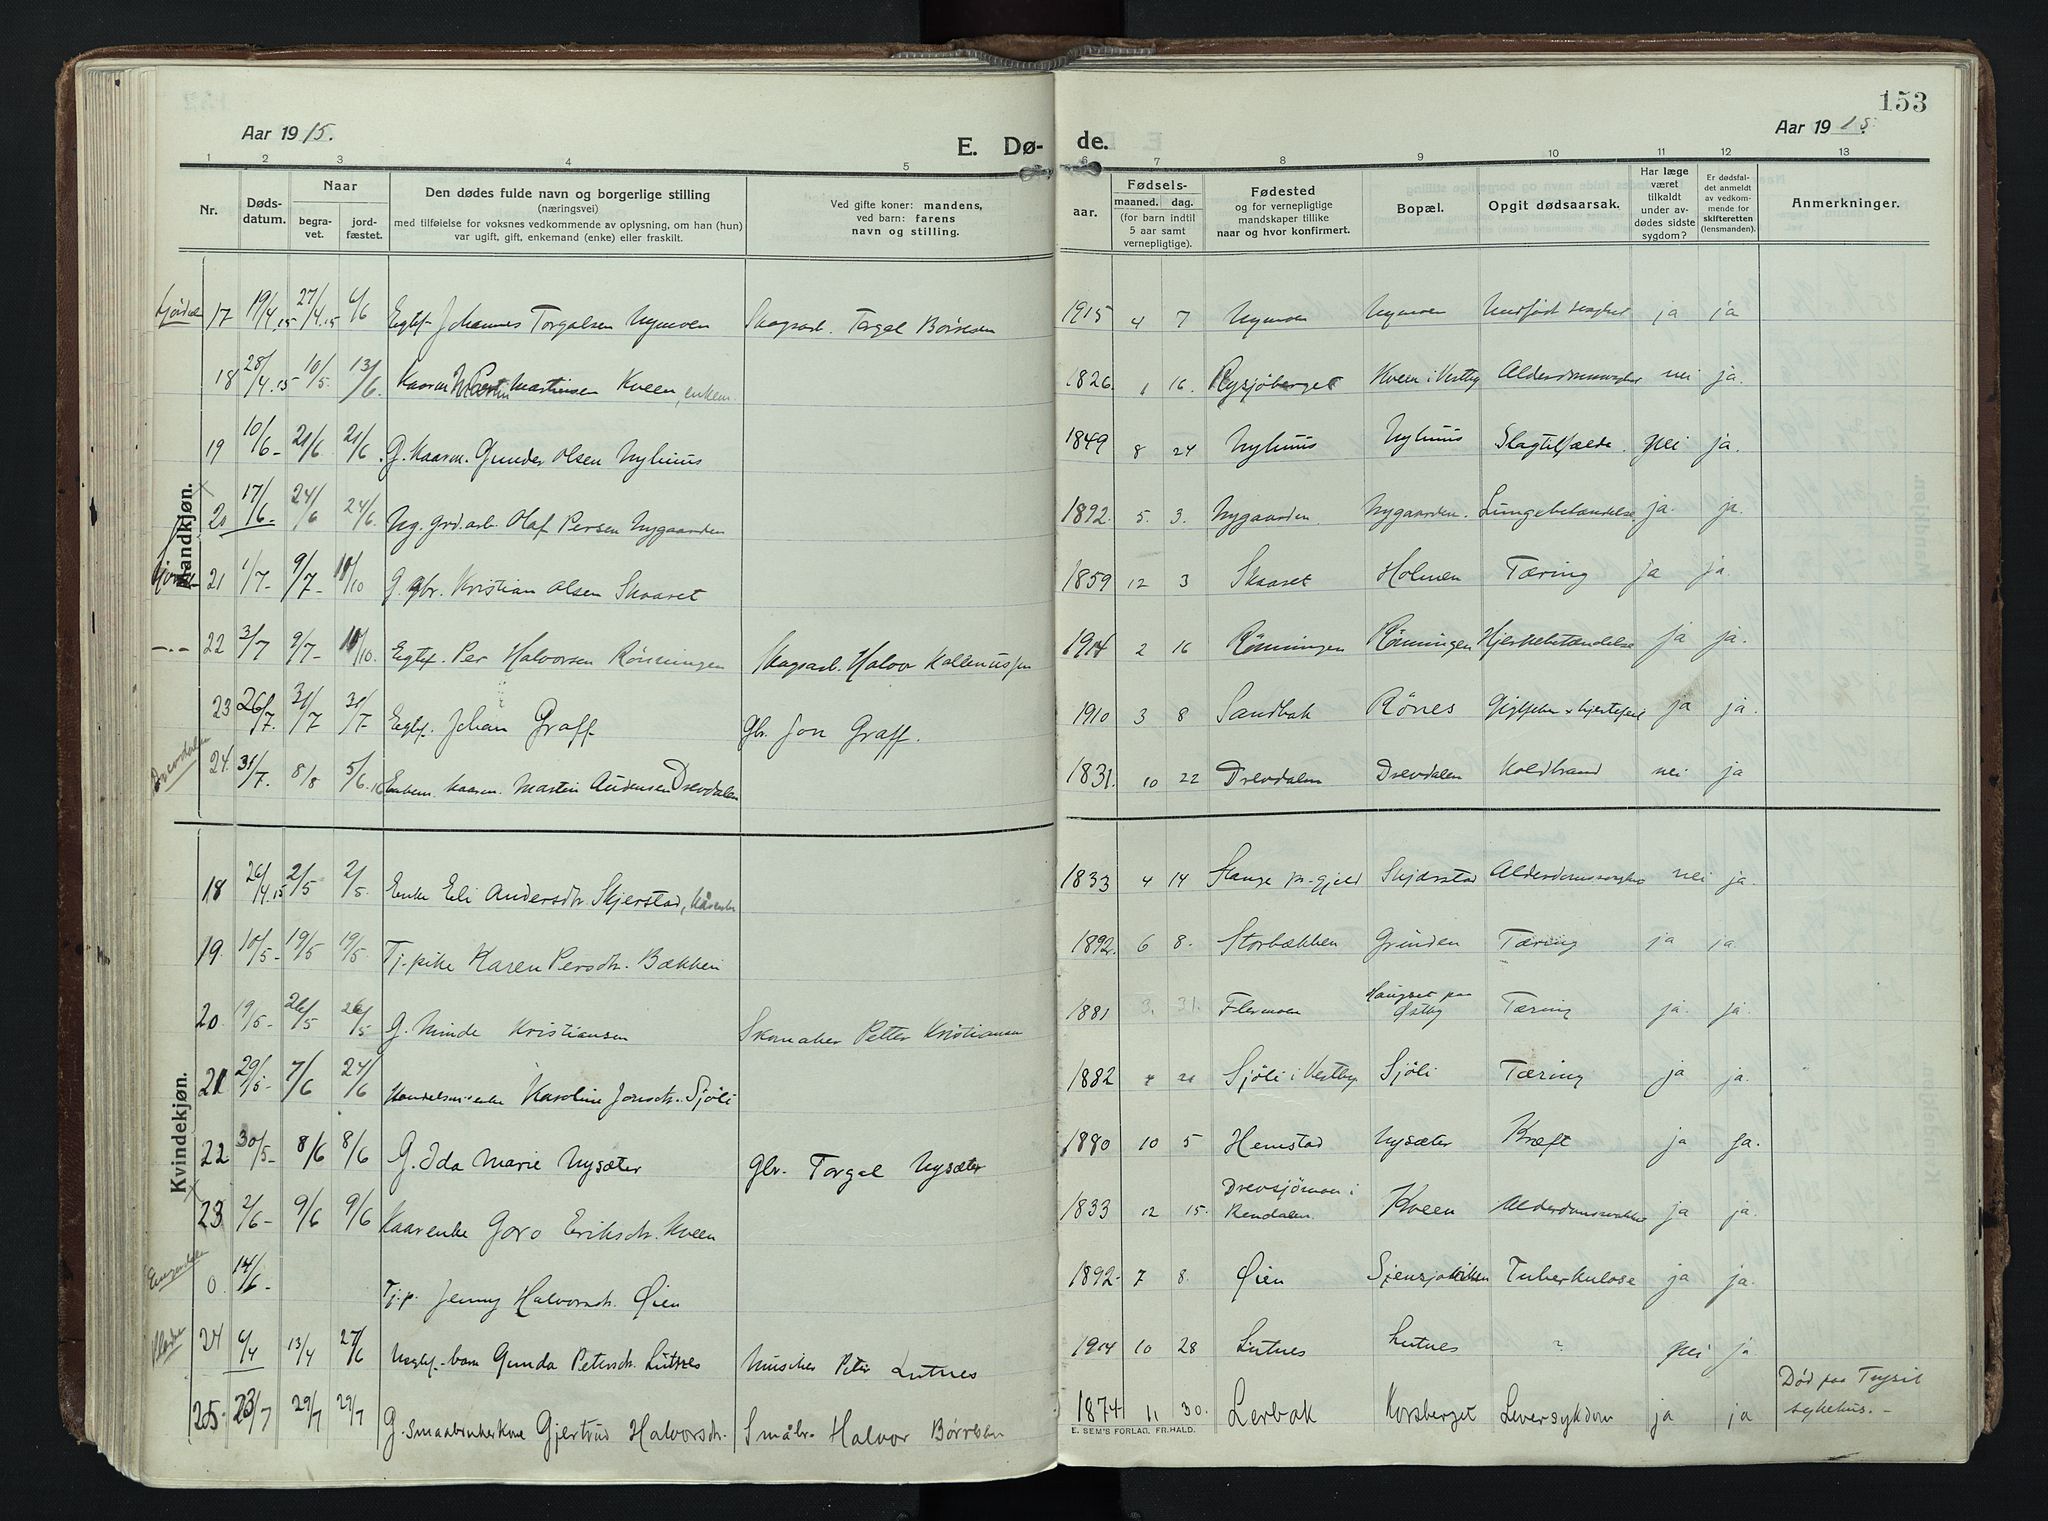 153
Aar 1915.
E. Dø-
de.
Aar 1915.
1 2 3 4 5 6 7 8 9 10 11 12 13
Nr.
Døds-
datum.
Naar
begra-
vet.
jord-
fæstet.
Den dødes fulde navn og borgerlige stilling
(næringsvei)
med tilføielse for voksnes vedkommende av oplysning, om han (hun)
var ugift, gift, enkemand (enke) eller fraskilt.
Ved gifte koner: mandens,
ved barn: farens
navn og stilling.
aar.
Fødsels-
maaned. dag.
(for barn indtil
5 aar samt
vernepligtige).
Fødested
og for vernepligtige
mandskaper tillike
naar og hvor konfirmert.
Bopæl.
Opgit dødsaarsak.
Har læge
været
tilkaldt
under av-
dødes sidste
sygdom?
Er dødsfal-
det anmeldt
av vedkom-
mende for
skifteretten
(lensmanden).
Anmerkninger.
Mandkjøn.
17 19/4 15 27/4 15 6/6 Egtef. Johannes Torgalsen Nymoen Skogsarb. Torgal Børresen 1915 4 7 Nymoen Nymoen Medfødt svaghet ja ja
18 28/4 15 10/5 13/6. Kaarm. Martinsen Kveen, enkem. 1826 1 16. Rysjøberget Kveen i Vestby Alderdomssvaghet nei ja.
19 10/6- 21/6 21/6 G. Kaarm. Gunder Olsen Nyhuus 1849 8 24 Nyhuus Nyhuus Slagtilfælde. nei ja.
20 17/6- 24/6 24/6. Ug. grd.arb. Olaf Persen Nygaarden 1892. 5. 3. Nygaarden. Nygaarden. Lungebetændelse ja. ja.
21 1/7- 9/7- 10/10 G. gbr. Kristian Olsen Skaaret 1859 12 3 Skaaret Holmen Tæring ja ja.
-.- 22 3/7 9/7- 10/10. Egtef. Per Halvorsen Rønningen Skogsarb. Halvor 1914 2 16 Rønningen Rønningen Hjernebetændelse ja ja.
23 26/7. 31/7 31/7 Egtef. Johan Graff Gbr. Jon Graff. 1910 3 8 Sandbak Rønes Gigtfeber + hjertefeil ja ja.
Drevdalen 24. 31/7. 8/8 5/6.16 Enkem. kaarm. Martin Audensen Drevdalen 1831. 10 22 Drevdalen Drevdalen Koldbrand nei ja
Kvindekjøn.
18 26/4.15 2/5 2/5. Enke Eli Andersdtr. Skjerstad, 1833 4 14 Stange pr.gjeld Skjærstad Alderdomssvaghet nei ja.
19. 10/5- 19/5 19/5. Tj.pike Karen Persdtr. Bækken 1892. 6 8. Storbækken Grinden Tæring ja ja.
20. 19/5- 26/5 26/5 G. Minda Kristiansen Skomaker Petter Kristiansen 1881 3. 31. Flermoen Haugset paa Østby Tæring ja. ja.
21 29/5- 7/6 24/6 Handelsm.enke Karoline Jonsdtr. Sjøli 1882 Sjøli i Vestby Sjøli Tæring ja ja.
22 30/5- 8/6 8/6 G. Ida Marie Nysæter Gbr. Torgal Nysæter 1880 10 5 Hemstad Nysæter Kræft ja ja.
23 2/6- 9/6 9/6 Kaarenke Goro Eriksdtr. Kveen 1833 12 15. Drevsjømoen i Rendalen Kveen Alderdomssvakhet ja ja.
0 14/6- Tj.p. Jenny Halvorsdtr. Øien 1892- 7 8. Øien Tuberkulose ja ja.
24 6/4 13/4 27/6 Uegtef. barn Gunda Petersdtr. Lutnes Musiker Peter Lutnes 1914 10 28 Lutnes Lutnes ? nei ja
25. 23/7 29/7 29/7 G. Smaabrukerkone Gjertrud Halvorsdtr. Småbr. Halvor Børresen 1874 11 30. Lerbak Korsberget Leversykdom ja ja Død paa Trysil sykehus.-
E. SEM'S FORLAG, FR.HALD.